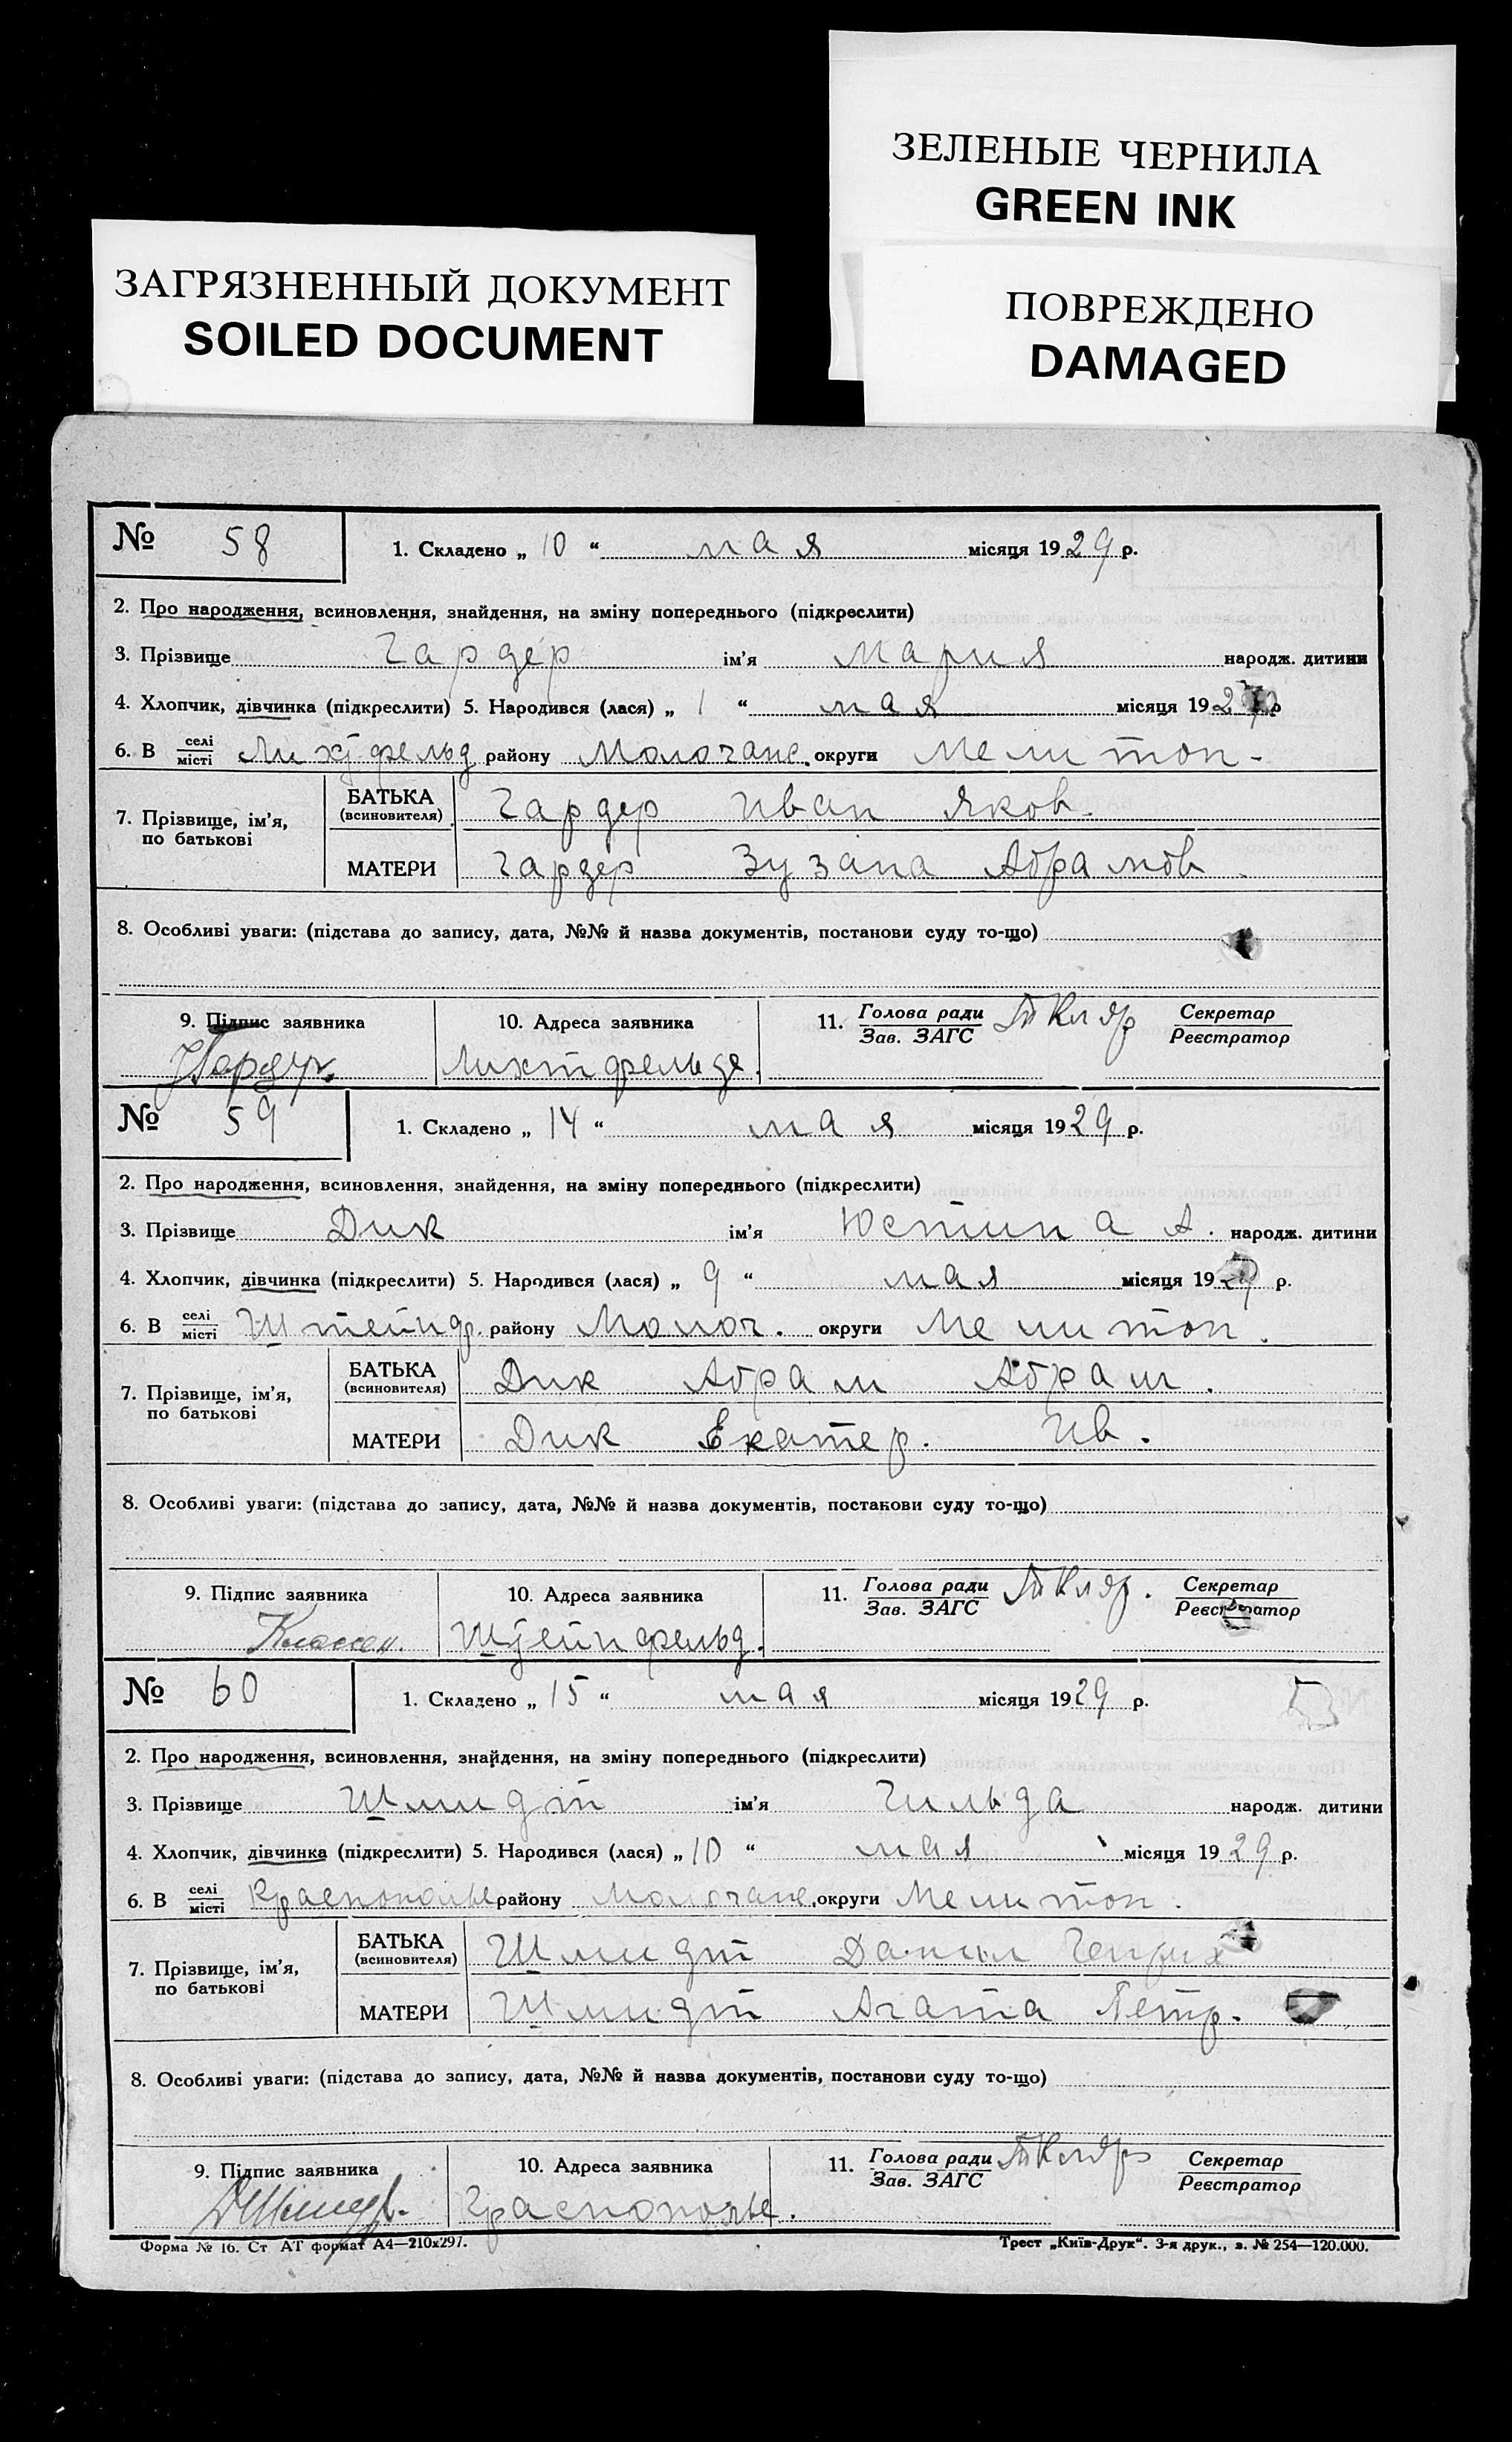 ЗЕЛЕНЫЕ ЧЕРНИЛА
GREEN INK
ЗАГРЯЗНЕННЫЙ ДОКУМЕНТ
SOILED DOCUMENT
ПОВРЕЖДЕНО
DAMAGED
№ 58 1. Складено „ 10 “ мая місяця 1929 р.
2. Про народження, всиновлення, знайдення, на зміну попереднього (підкреслити)
3. Прізвище Гардер ім'я Мария народж. дитини
4. Хлопчик, дівчинка (підкреслити) 5. Народився (лася) „ 1 “ мая місяця 1929 р
6. В селі/місті Лихтфельд району Молочанс. округи Мелитоп-
7. Прізвище, ім'я, по батькові
БАТЬКА (всиновителя) Гардер Иван Яков.
МАТЕРИ Гардер Зузана Абрамов
8. Особливі уваги: (підстава до запису, дата, №№ й назва документів, постанови суду то-що)
9. Підпис заявника 10. Адреса заявника 11. Голова ради/Зав. ЗАГС Секретар/Реєстратор
Лихтфельде.
№ 59 1. Складено „ 14 “ мая місяця 1929 р.
2. Про народження, всиновлення, знайдення, на зміну попереднього (підкреслити)
3. Прізвище Дик ім'я Юстина А. народж. дитини
4. Хлопчик, дівчинка (підкреслити) 5. Народився (лася) „ 9 “ мая місяця 1929 р.
6. В селі/місті Штейнф. району Молоч. округи Мелитоп.
7. Прізвище, ім'я, по батькові
БАТЬКА (всиновителя) Дик Абрам Абрам.
МАТЕРИ Дик Екатер. Ив.
8. Особливі уваги: (підстава до запису, дата, №№ й назва документів, постанови суду то-що)
9. Підпис заявника 10. Адреса заявника 11. Голова ради/Зав. ЗАГС Секретар/Реєстратор
Классен. Штейнфельд.
№ 60 1. Складено „ 15 “ мая місяця 1929 р.
2. Про народження, всиновлення, знайдення, на зміну попереднього (підкреслити)
3. Прізвище Шмидт ім'я Гильда народж. дитини
4. Хлопчик, дівчинка (підкреслити) 5. Народився (лася) „ 10 “ мая місяця 1929 р.
6. В селі/місті Краснополье району Молочанс. округи Мелитоп.
7. Прізвище, ім'я, по батькові
БАТЬКА (всиновителя) Шмидт Данил Генрих
МАТЕРИ Шмидт Агата Петр.
8. Особливі уваги: (підстава до запису, дата, №№ й назва документів, постанови суду то-що)
9. Підпис заявника 10. Адреса заявника 11. Голова ради/Зав. ЗАГС Секретар/Реєстратор
Краснополье.
Форма № 16. Ст АТ формат А4—210х297. Трест „Київ-Друк“. 3-я друк., з. № 254—120.000.